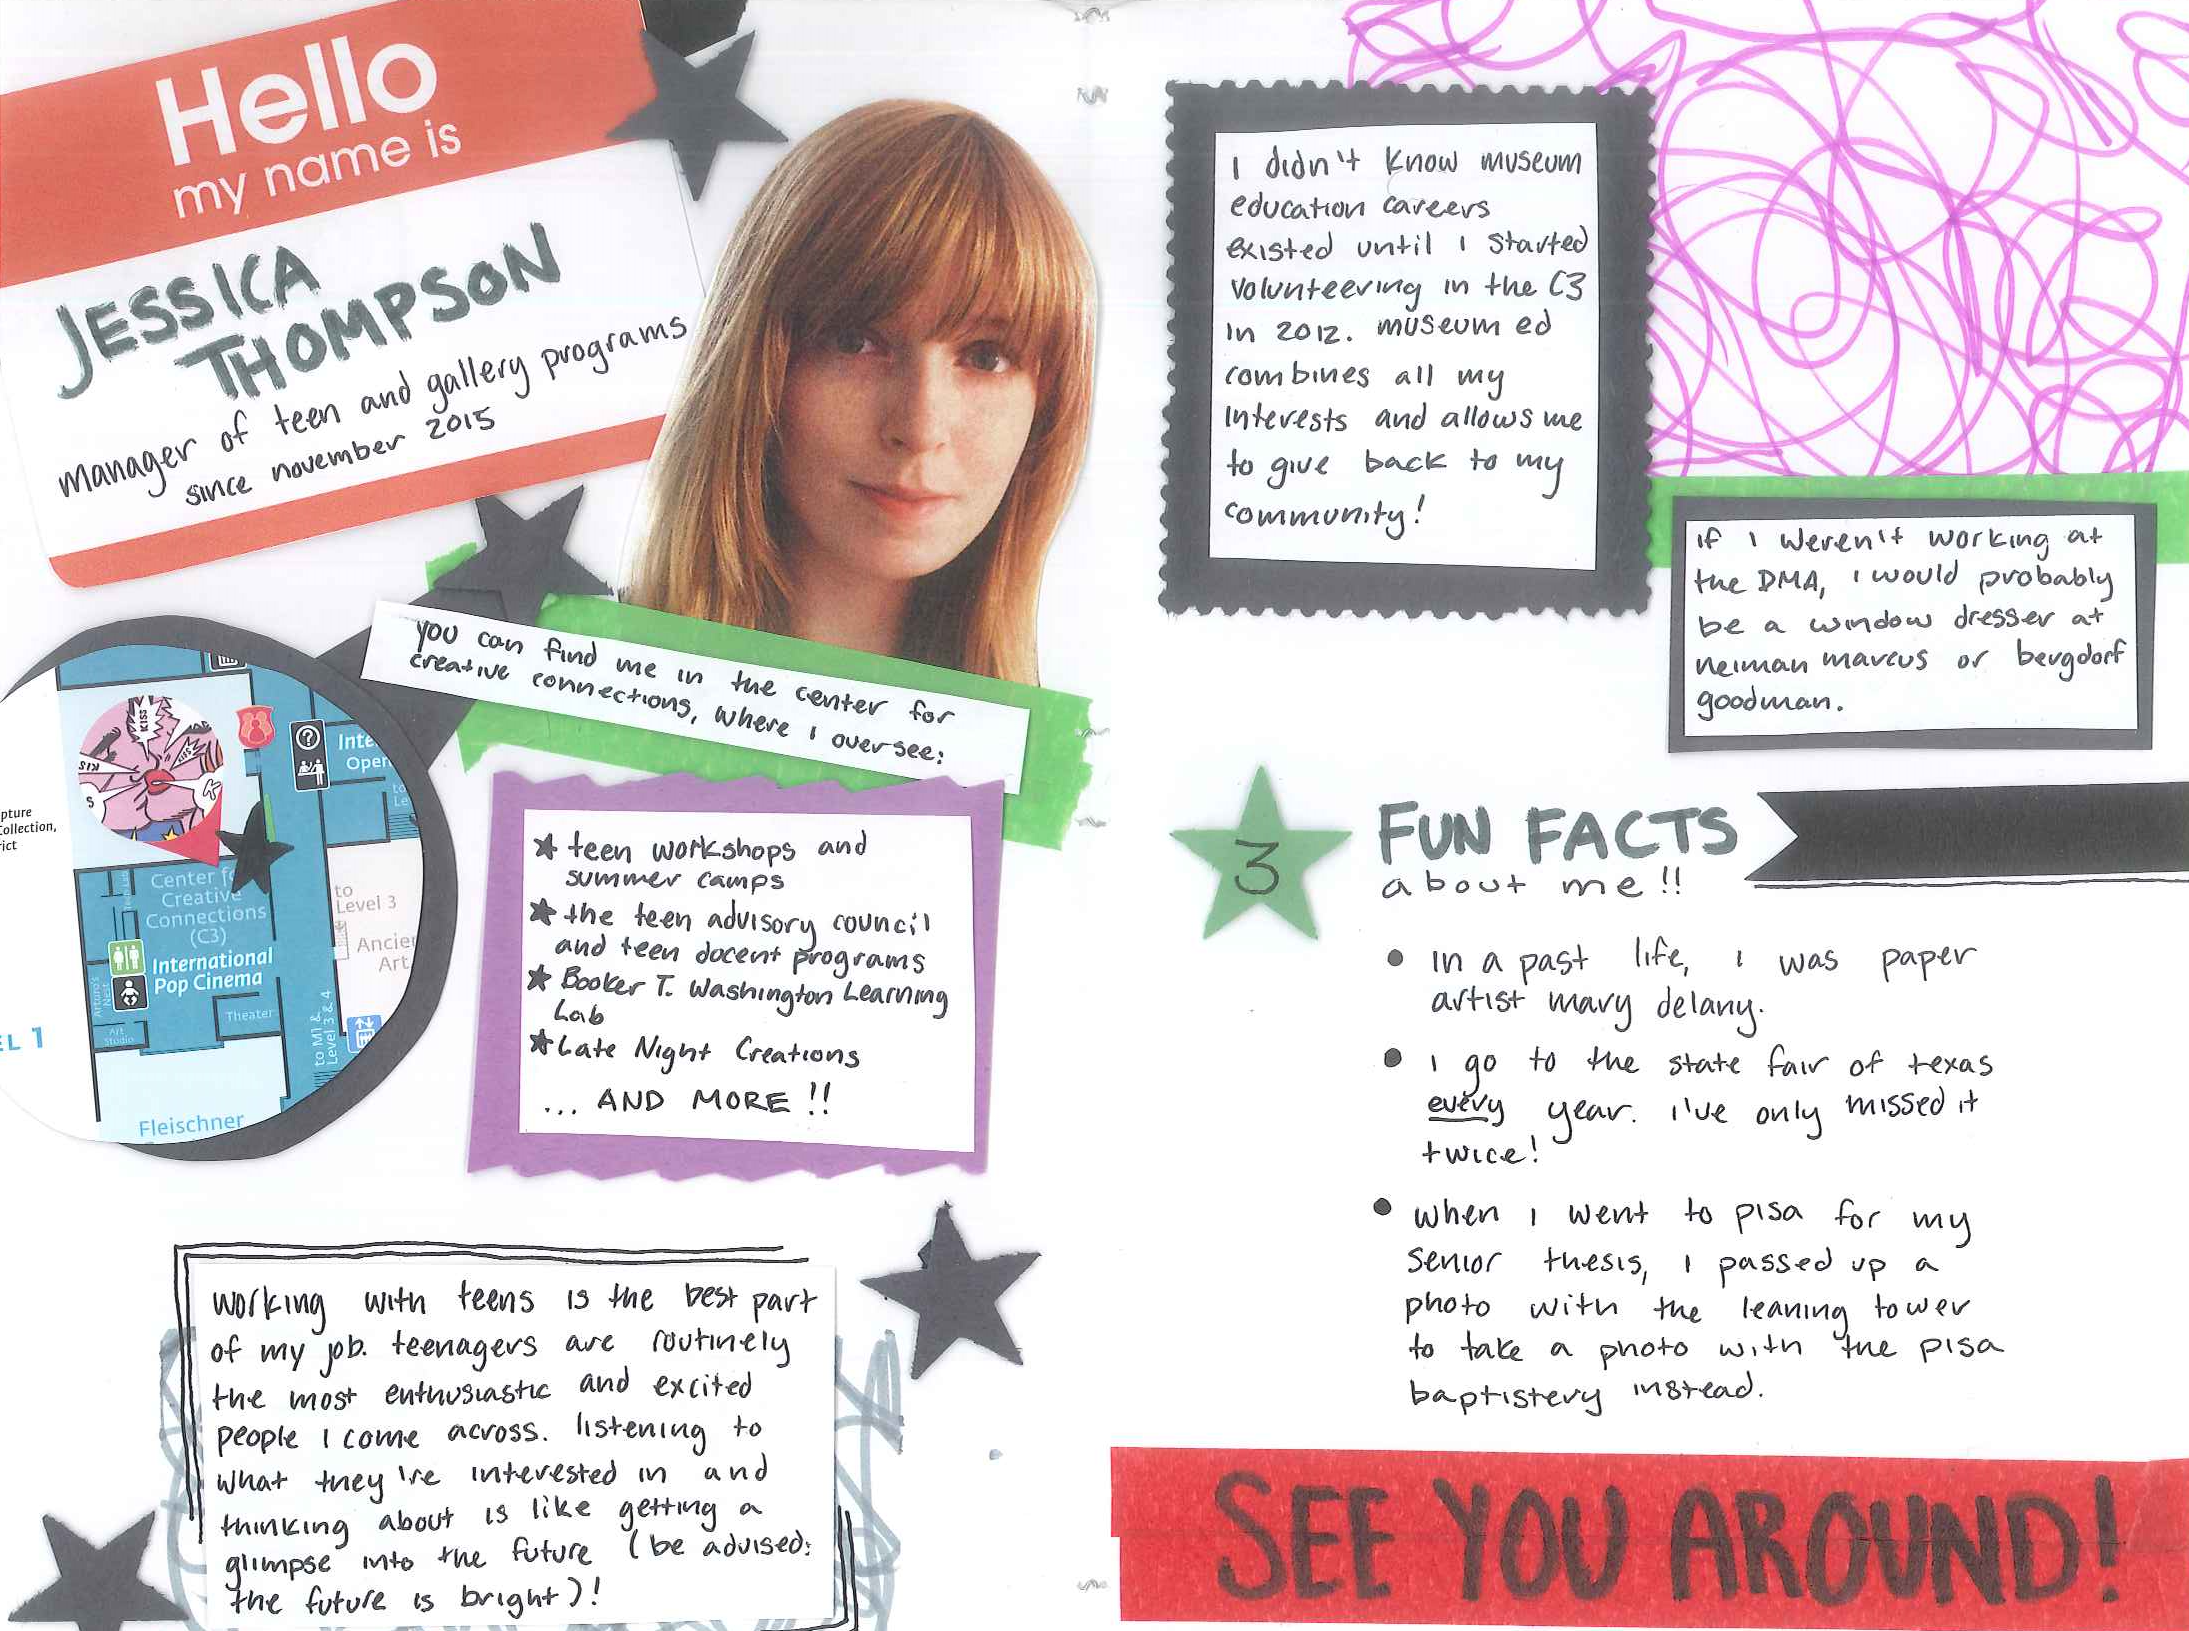 Hello
my name is
JESSICA
THOMPSON
manager of teen and gallery programs
since november 2015
you can find me in the center for
creative connections, where i oversee:
pture
Collection,
rict
KISS
KISS
KIS
S
Inte
Oper
to
Le
Center fo
Creative
Connections
(C3)
International
Pop Cinema
to
Level 3
Ancien
Art
Arturo's
Nest
Theater
Art
Studio
to M1 &
Level 3 & 4
EL 1
Fleischner
★ teen workshops and
summer camps
★ the teen advisory council
and teen docent programs
★ Booker T. Washington Learning
Lab
★ Late Night Creations
... AND MORE !!
working with teens is the best part
of my job. teenagers are routinely
the most enthusiastic and excited
people i come across. listening to
what they're interested in and
thinking about is like getting a
glimpse into the future (be advised:
the future is bright)!
I didn't know museum
education careers
existed until i started
volunteering in the C3
in 2012. museum ed
combines all my
interests and allows me
to give back to my
community!
if i weren't working at
the DMA, i would probably
be a window dresser at
neiman marcus or bergdorf
goodman.
3
FUN FACTS
about me!!
• in a past life, i was paper
artist mary delany.
• i go to the state fair of texas
every year. i've only missed it
twice!
• when i went to pisa for my
senior thesis, i passed up a
photo with the leaning tower
to take a photo with the pisa
baptistery instead.
SEE YOU AROUND!